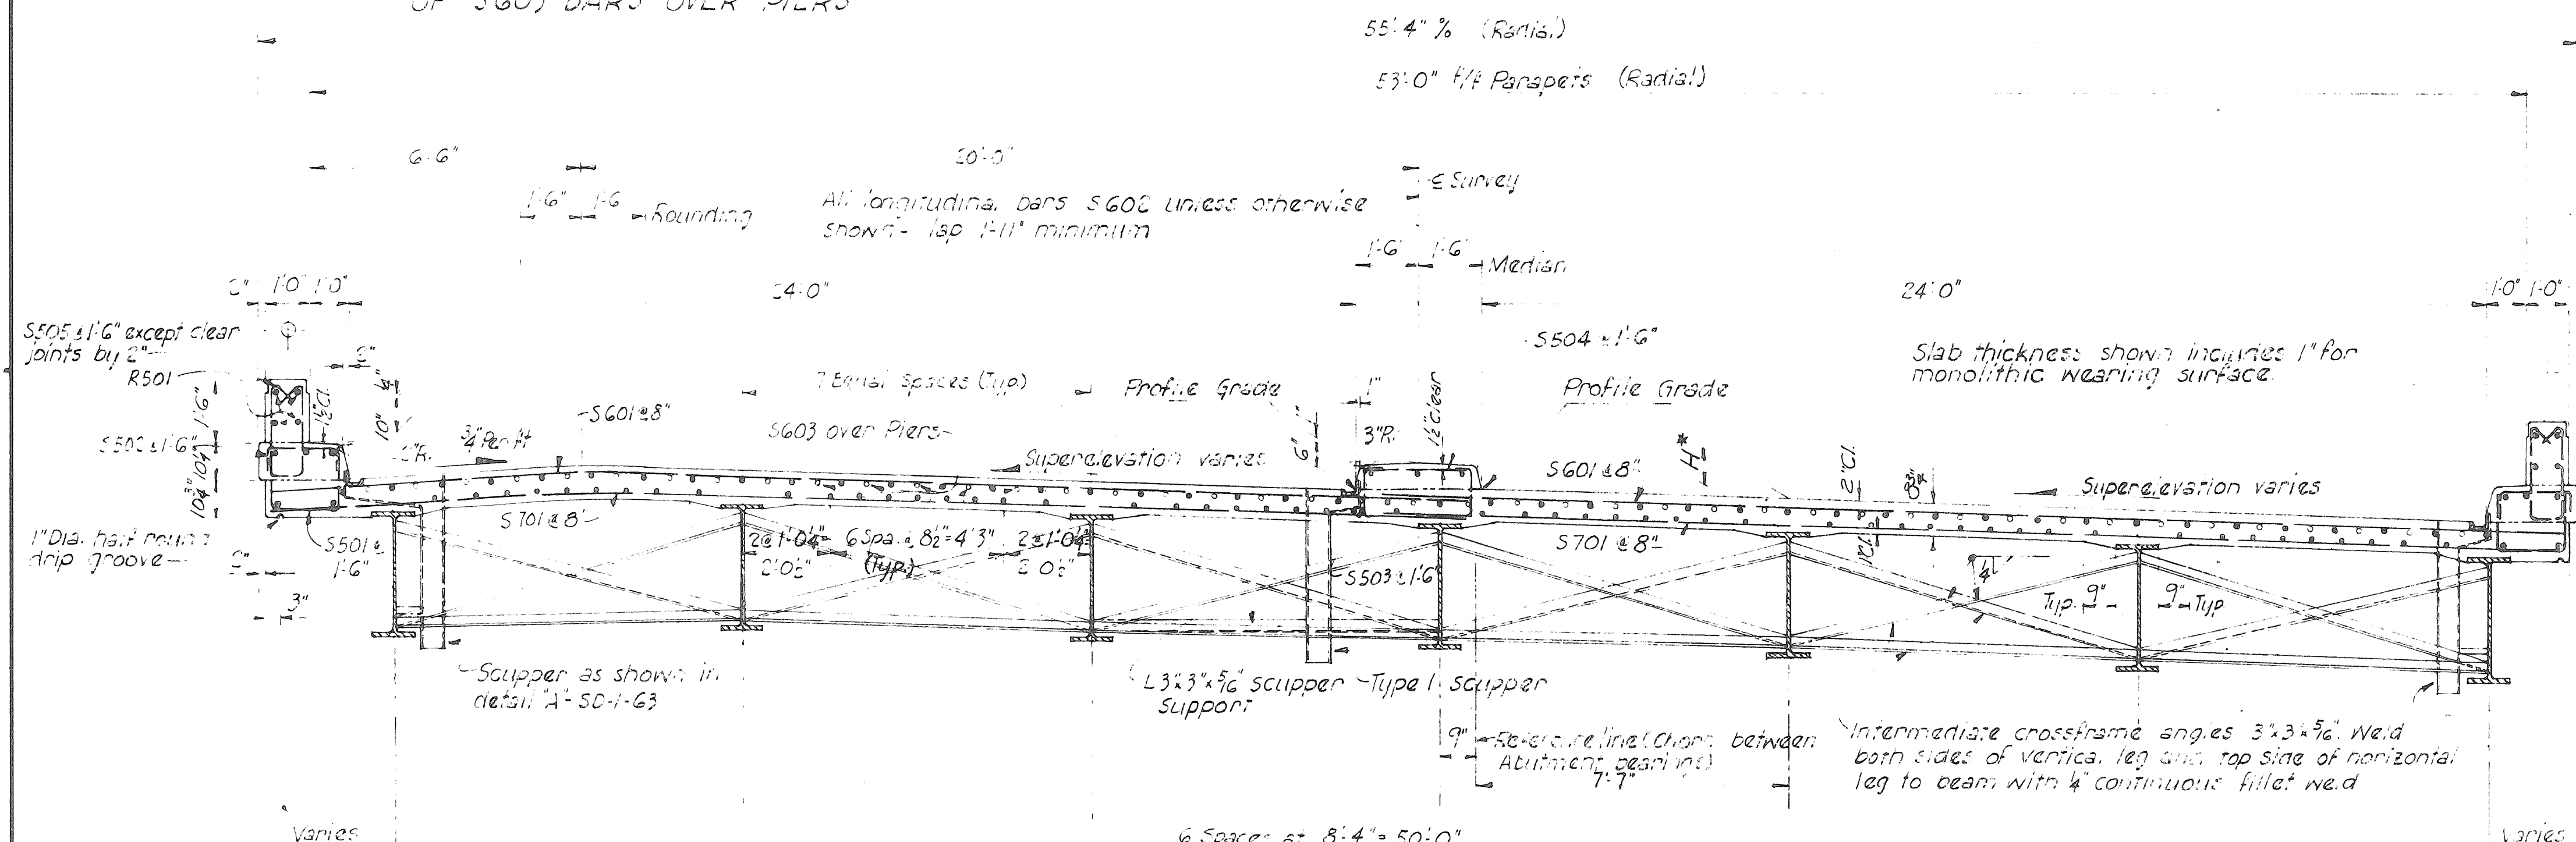 OF S603 BARS OVER PIERS
55'-4" % (Radial)
53'-0" F/F Parapets (Radial)
6'-6"
20'-0"
℄ Survey
1'-6" 1'-6 Rounding
All longitudinal bars S602 unless otherwise
shown - lap 1'-11" minimum
1'-6" 1'-6" Median
2" 1'-0" 1'-0"
24'-0"
24'-0"
1'-0" 1'-0"
S505 @ 1'-6" except clear
joints by 2"
R501
S504 @ 1'-6"
Slab thickness shown includes 1" for
monolithic wearing surface.
7 Equal Spaces (Typ.)
Profile Grade
1"
1½" Clear
Profile Grade
10"
1'-9"
S502 @ 1'-6"
10¾"
¾" Per ft
S601 @ 8"
S603 over Piers
6"
3"R.
Superelevation varies
S601 @ 8"
H*
2"Cl.
Superelevation varies
1" Dia. half round
drip groove
S501 @
1'-6"
3"
S701 @ 8"
2 @ 1'-0¼" 6 Spa. @ 8½" = 4'3" 2 @ 1'-0¼"
2'0½" (Typ.) 2'0½"
S503 @ 1'-6"
S701 @ 8"
1"Cl.
Typ. 9" 9" Typ.
Scupper as shown in
detail "A"- SD-1-63
L3"x3"x5/16" scupper
Support
Type 1 scupper
9" Reference line (Chord between
Abutment bearings)
7'-7"
Intermediate crossframe angles 3"x3"x5/16". Weld
both sides of vertical leg and top side of horizontal
leg to beam with ¼" continuous fillet weld
Varies
6 Spaces at 8'-4" = 50'-0"
Varies